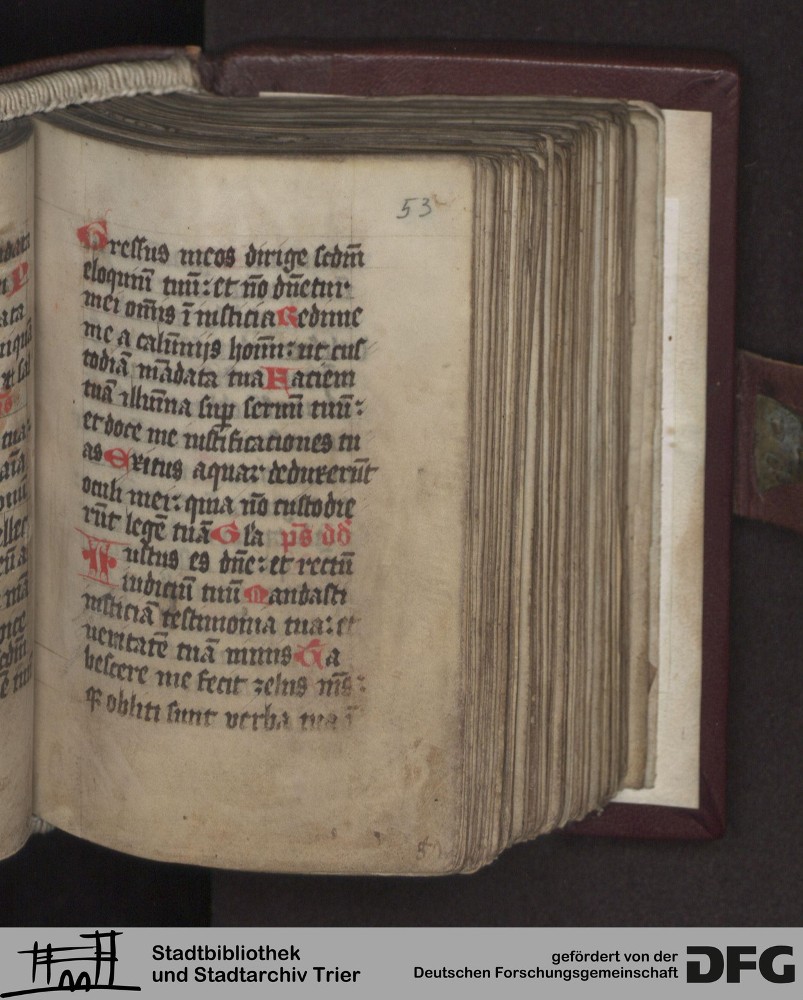 53
Gressus meos dirige scdm̄
eloquiū tuū: et nō dn̄etur
mei om̄is ī iusticia Redime
me a calūnijs hoīm: ut cus
todiā mādata tua Faciem
tuā illumīa suꝑ seruū tuū:
et doce me iustificaciones tu
as Exitus aquar deduxerūt
oculi mei: quia nō custodie
rūt legē tuā Gla ps̄ dd̄
Iustus es dn̄e: et rectū
iudiciū tuū Mandasti
iusticiā testimonia tua: et
ueritatē tuā nimis Ta
bescere me fecit zelus m̄s:
qr obliti sunt uerba tua
Stadtbibliothek
und Stadtarchiv Trier
gefördert von der
Deutschen Forschungsgemeinschaft
DFG